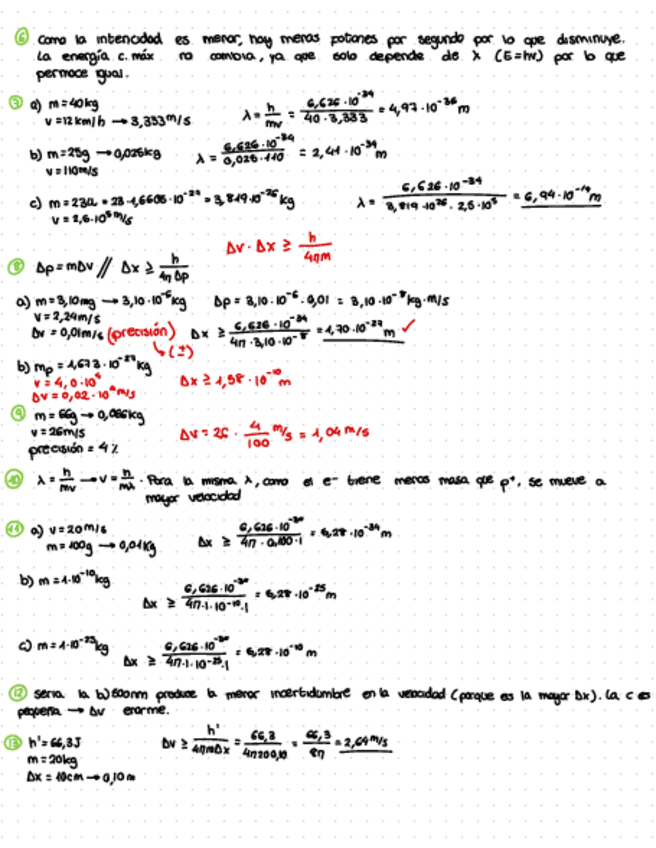 ⑥ Como la intencidad es menor, hay menos fotones por segundo por lo que disminuye.
La energía c. máx no cambia, ya que solo depende de λ (E=hν) por lo que
permace igual.
⑦ a) m = 40kg
v = 12 km/h → 3,333 m/s
λ = h/mv = 6,626·10^-34 / 40·3,333 = 4,97·10^-36 m
b) m = 25g → 0,025kg
v = 110m/s
λ = 6,626·10^-34 / 0,025·110 = 2,41·10^-34 m
c) m = 23u = 23·1,6605·10^-27 = 3,819·10^-26 kg
λ = 6,626·10^-34 / 3,819·10^26 · 2,5·10^5 = 6,94·10^-14 m
Δv · Δx ≥ h/4πm
⑧ Δp = mΔv // Δx ≥ h/4π Δp
a) m = 3,10mg → 3,10·10^-6 kg Δp = 3,10·10^-6 · 0,01 = 3,10·10^-8 kg·m/s
v = 2,24m/s
Δv = 0,01m/s (precisión) Δx ≥ 6,626·10^-34 / 4π·3,10·10^-8 = 1,70·10^-27 m ✓
↳ (±)
b) mp = 1,673·10^-27 kg
Δx ≥ 1,58·10^-10 m
⑨ m = 66g → 0,066kg
v = 26m/s
Δv = 26 · 4/100 m/s = 1,04 m/s
precisión = 4%
⑩ λ = h/mv → v = h/mλ . Para la misma λ, como el e⁻ tiene menos masa que p⁺, se mueve a
mayor velocidad
⑪ a) v = 20m/s
m = 100g → 0,01kg
Δx ≥ / 4π · 0,100·1 = 5,28·10^-34 m
b) m = 1·10^-10 kg
Δx ≥ / 4π·1·10^-10·1 = 5,28·10^-25 m
c) m = 1·10^-25 kg
Δx ≥ / 4π·1·10^-25·1 = 5,28·10^-10 m
⑫ seria la b) 600nm produce la menor incertidumbre en la velocidad (porque es la mayor Δx). La c es
pequeña → Δv enorme.
⑬ h' = 66,3J
m = 20kg
Δx = 10cm → 0,10m
Δv ≥ h'/4πmΔx = 66,3/4π200,10 = 66,3/8π = 2,64 m/s